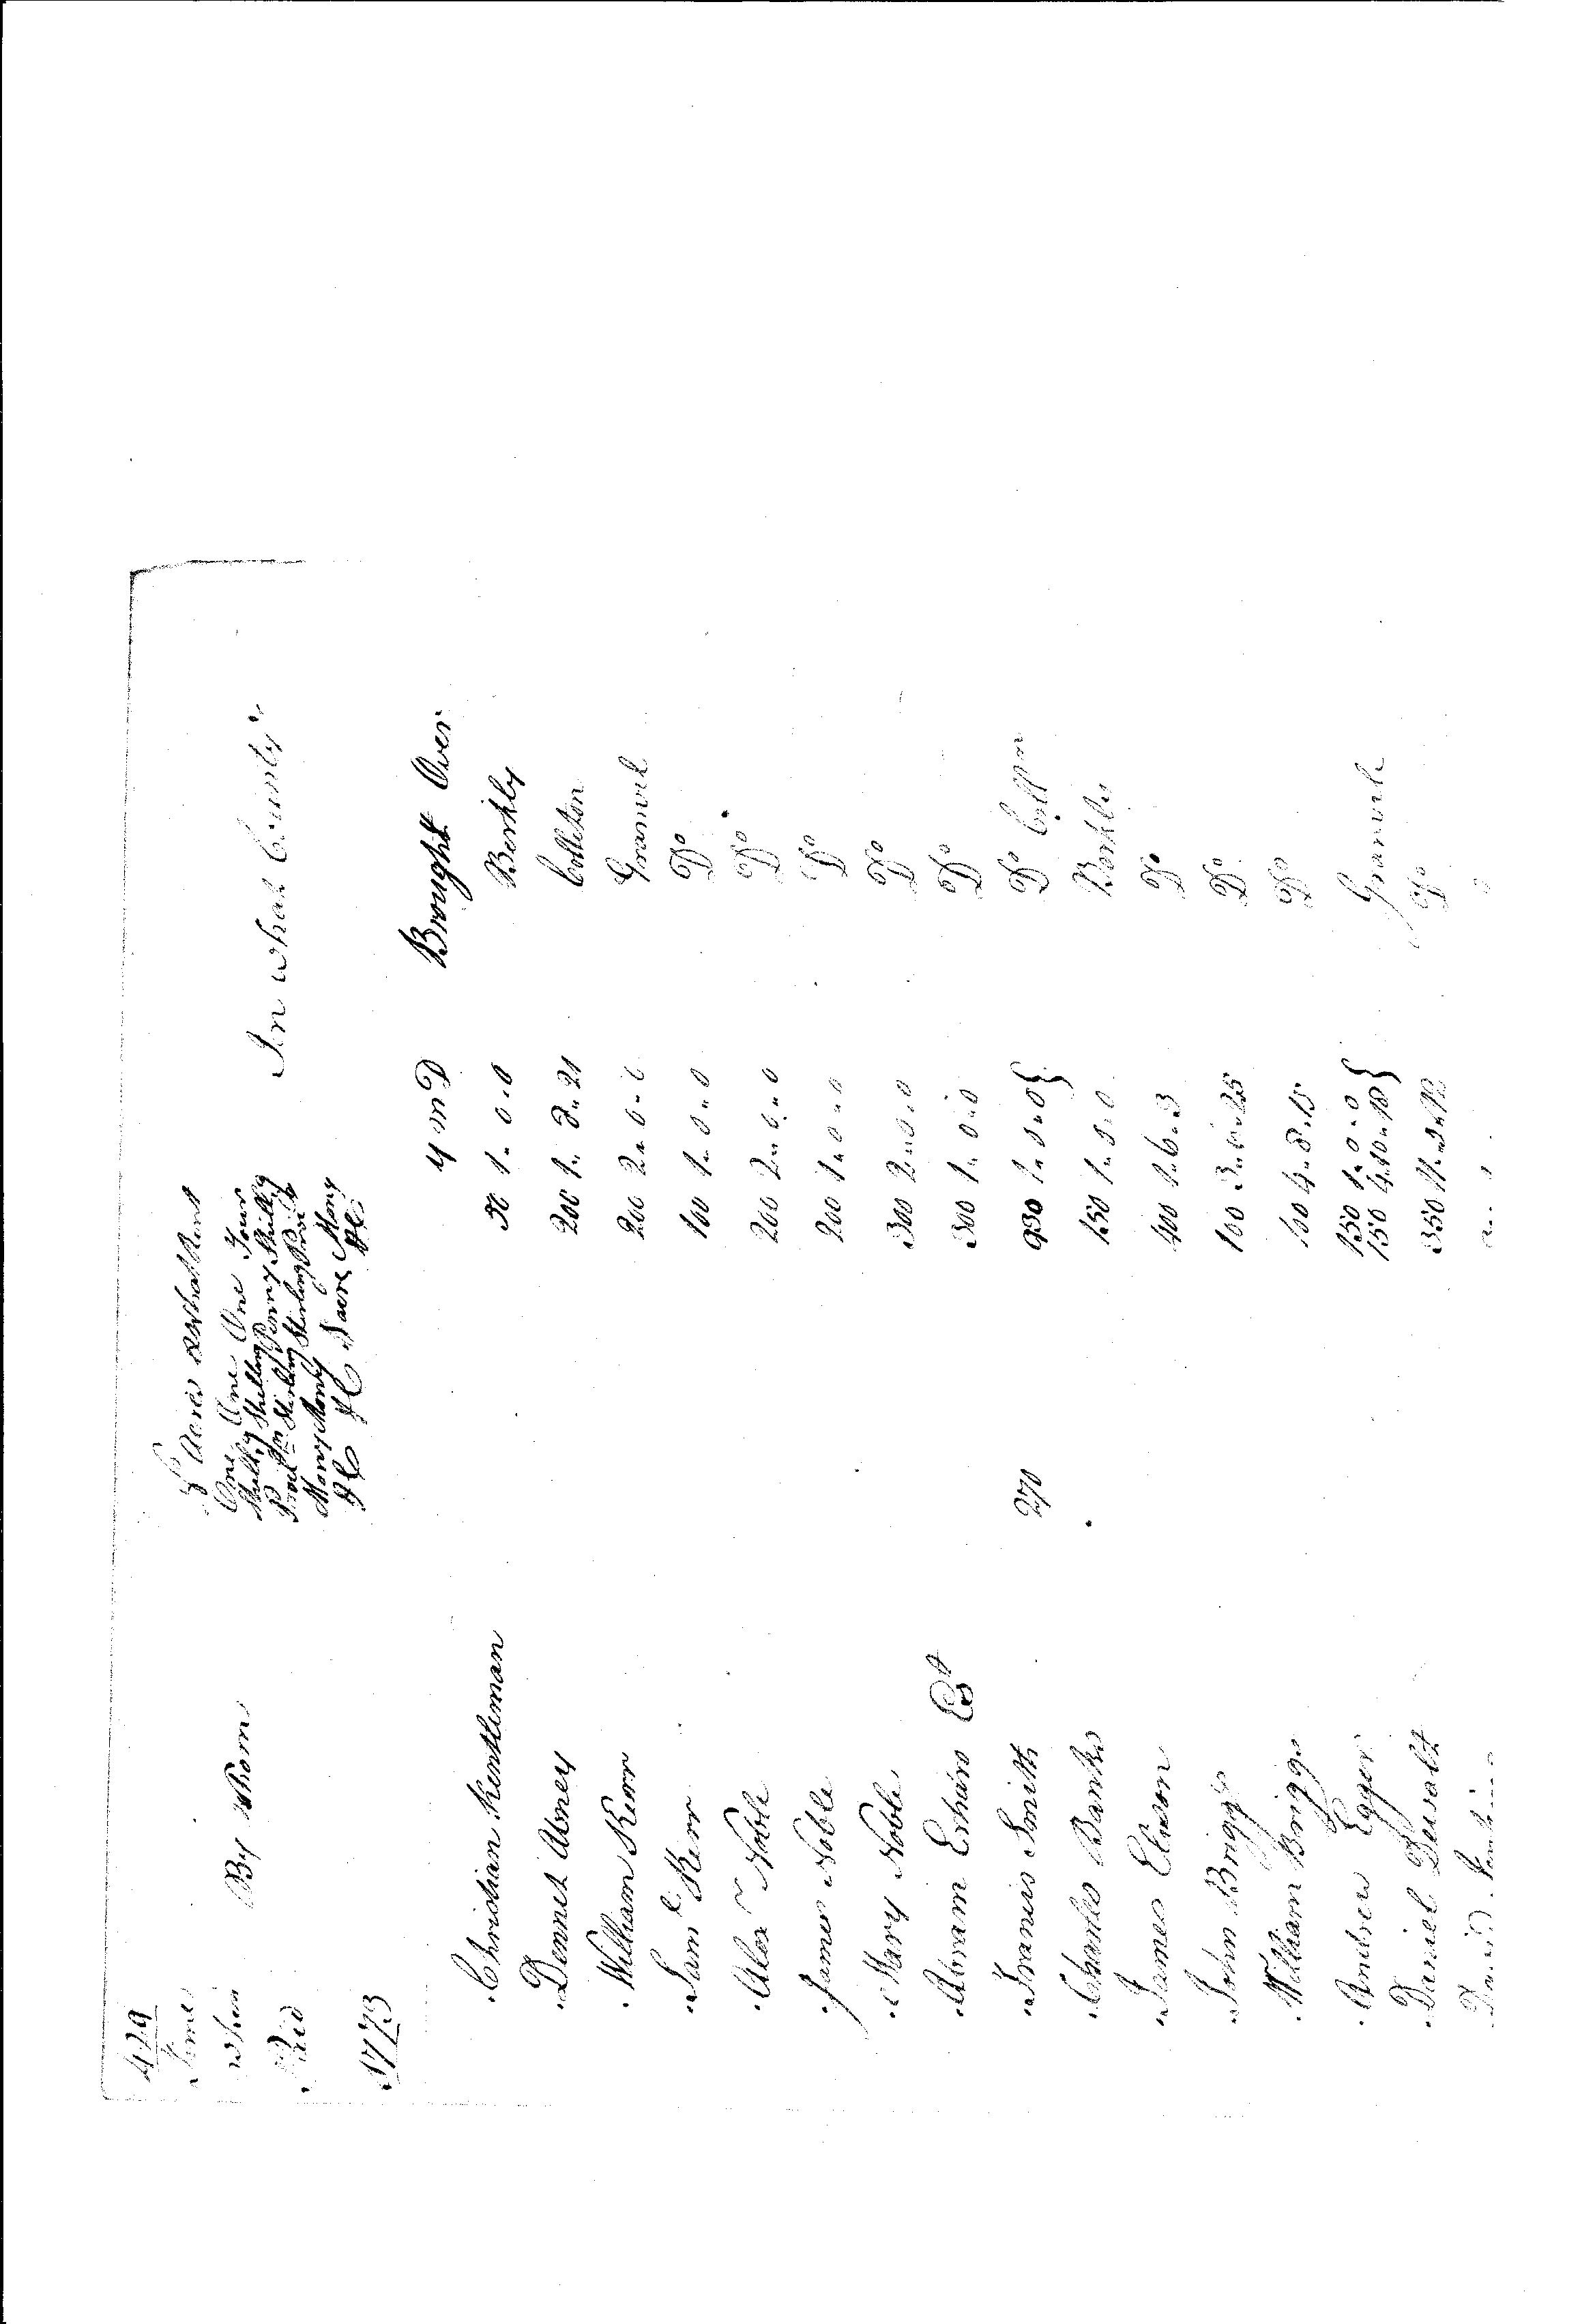 429
Time when Paid
By Whom
Acres & What Rent
One Shillg Procln Money ⅌ C
One Shilling Sterling Money ⅌ C
One Penny Sterling ⅌ acre
Four Shillg Money ⅌ C
In what County
1773
Y M D Brought Over
Christian Kentleman 50 1..0..0 Berkly
Dennet Abney 200 1..8..21 Colleton
William Kerr 200 2..0..0 Granvil
Saml Kerr 100 1..0..0 Do
Alexr Noble 200 2..0..0 Do
James Noble 200 1..0..0 Do
Mary Noble 300 2..0..0 Do
Abram Erhard Est 300 1..0..0 Do
Francis Smith 270 930 1..0..0} Do Collton
Charles Banks 150 1..0..0 Berkly
James Elison 400 1..6..3 Do
John Briggs 100 3..6..25 Do
William Briggs 100 4..8..15 Do
Andrew Egger 150 1..0..0
150 4..10..18} Granvile
Daniel Duvalt 350 11..9..12 Do